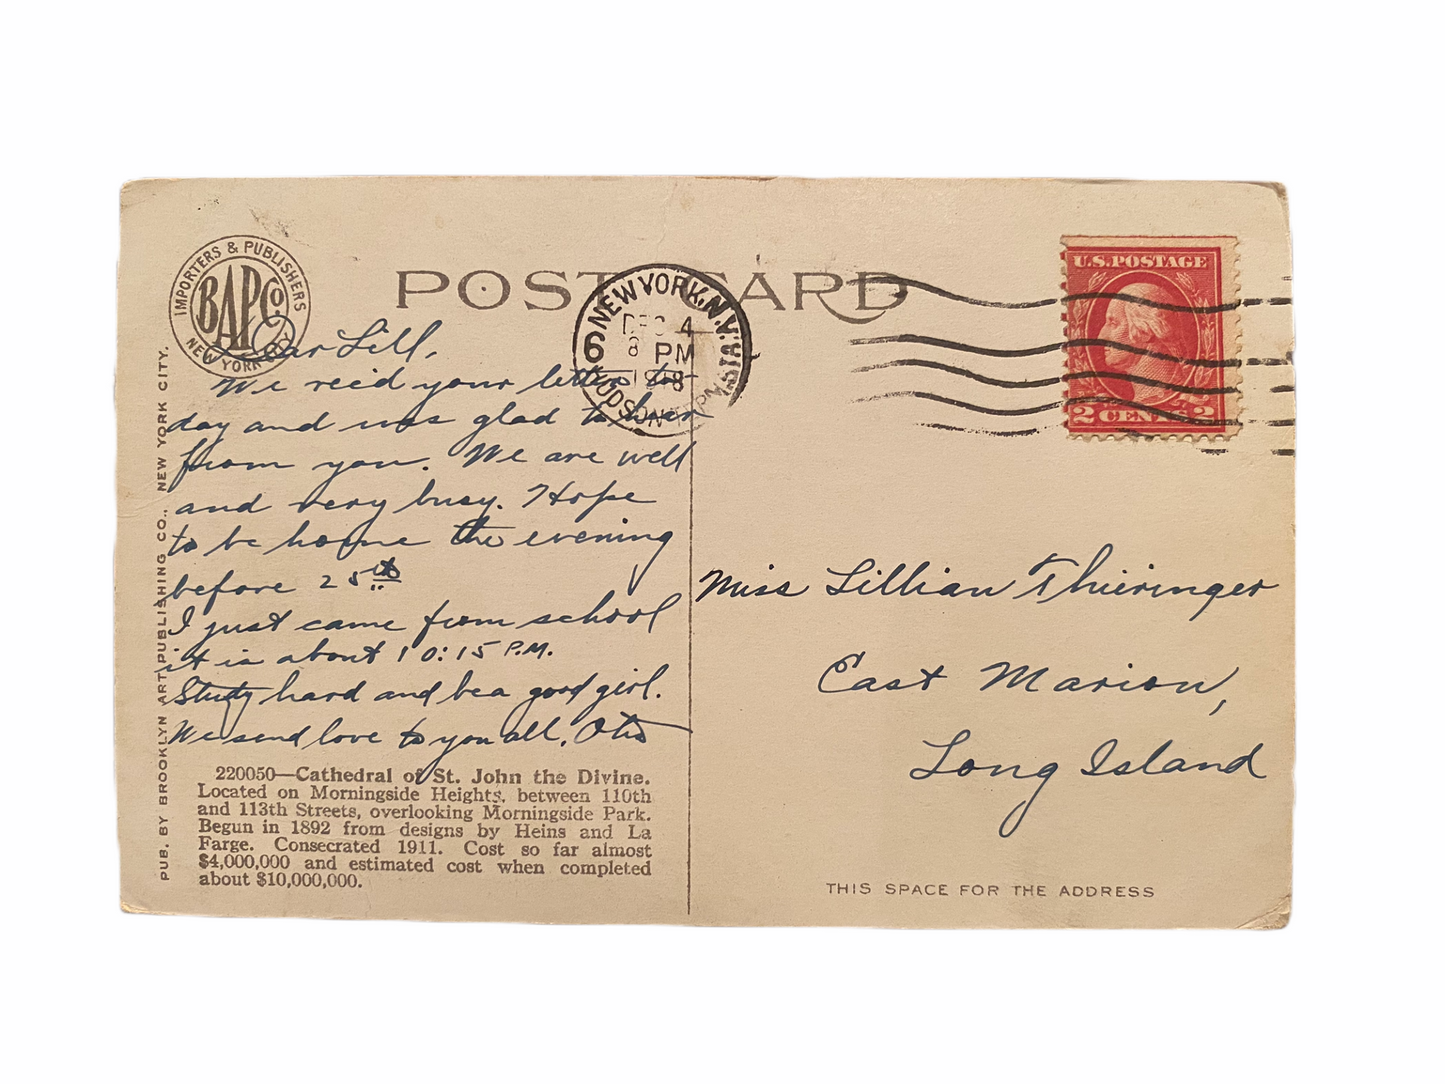 IMPORTERS & PUBLISHERS
BAPCo.
NEW YORK CITY
POST CARD
NEW YORK, N.Y.
DEC 4
8 PM
1918
6
HUDSON TERM. STA.
U.S.POSTAGE
2 CENTS 2
Dear Lill,
We recd your letter to-
day and was glad to hear
from you. We are well
and very busy. Hope
to be home the evening
before 25th
I just came from school
it is about 10:15 P.M.
Study hard and be a good girl.
We send love to you all, Otis
Miss Lillian Thieringer
East Marion,
Long Island
220050—Cathedral of St. John the Divine.
Located on Morningside Heights, between 110th
and 113th Streets, overlooking Morningside Park.
Begun in 1892 from designs by Heins and La
Farge. Consecrated 1911. Cost so far almost
$4,000,000 and estimated cost when completed
about $10,000,000.
PUB. BY BROOKLYN ART PUBLISHING CO., NEW YORK CITY.
THIS SPACE FOR THE ADDRESS